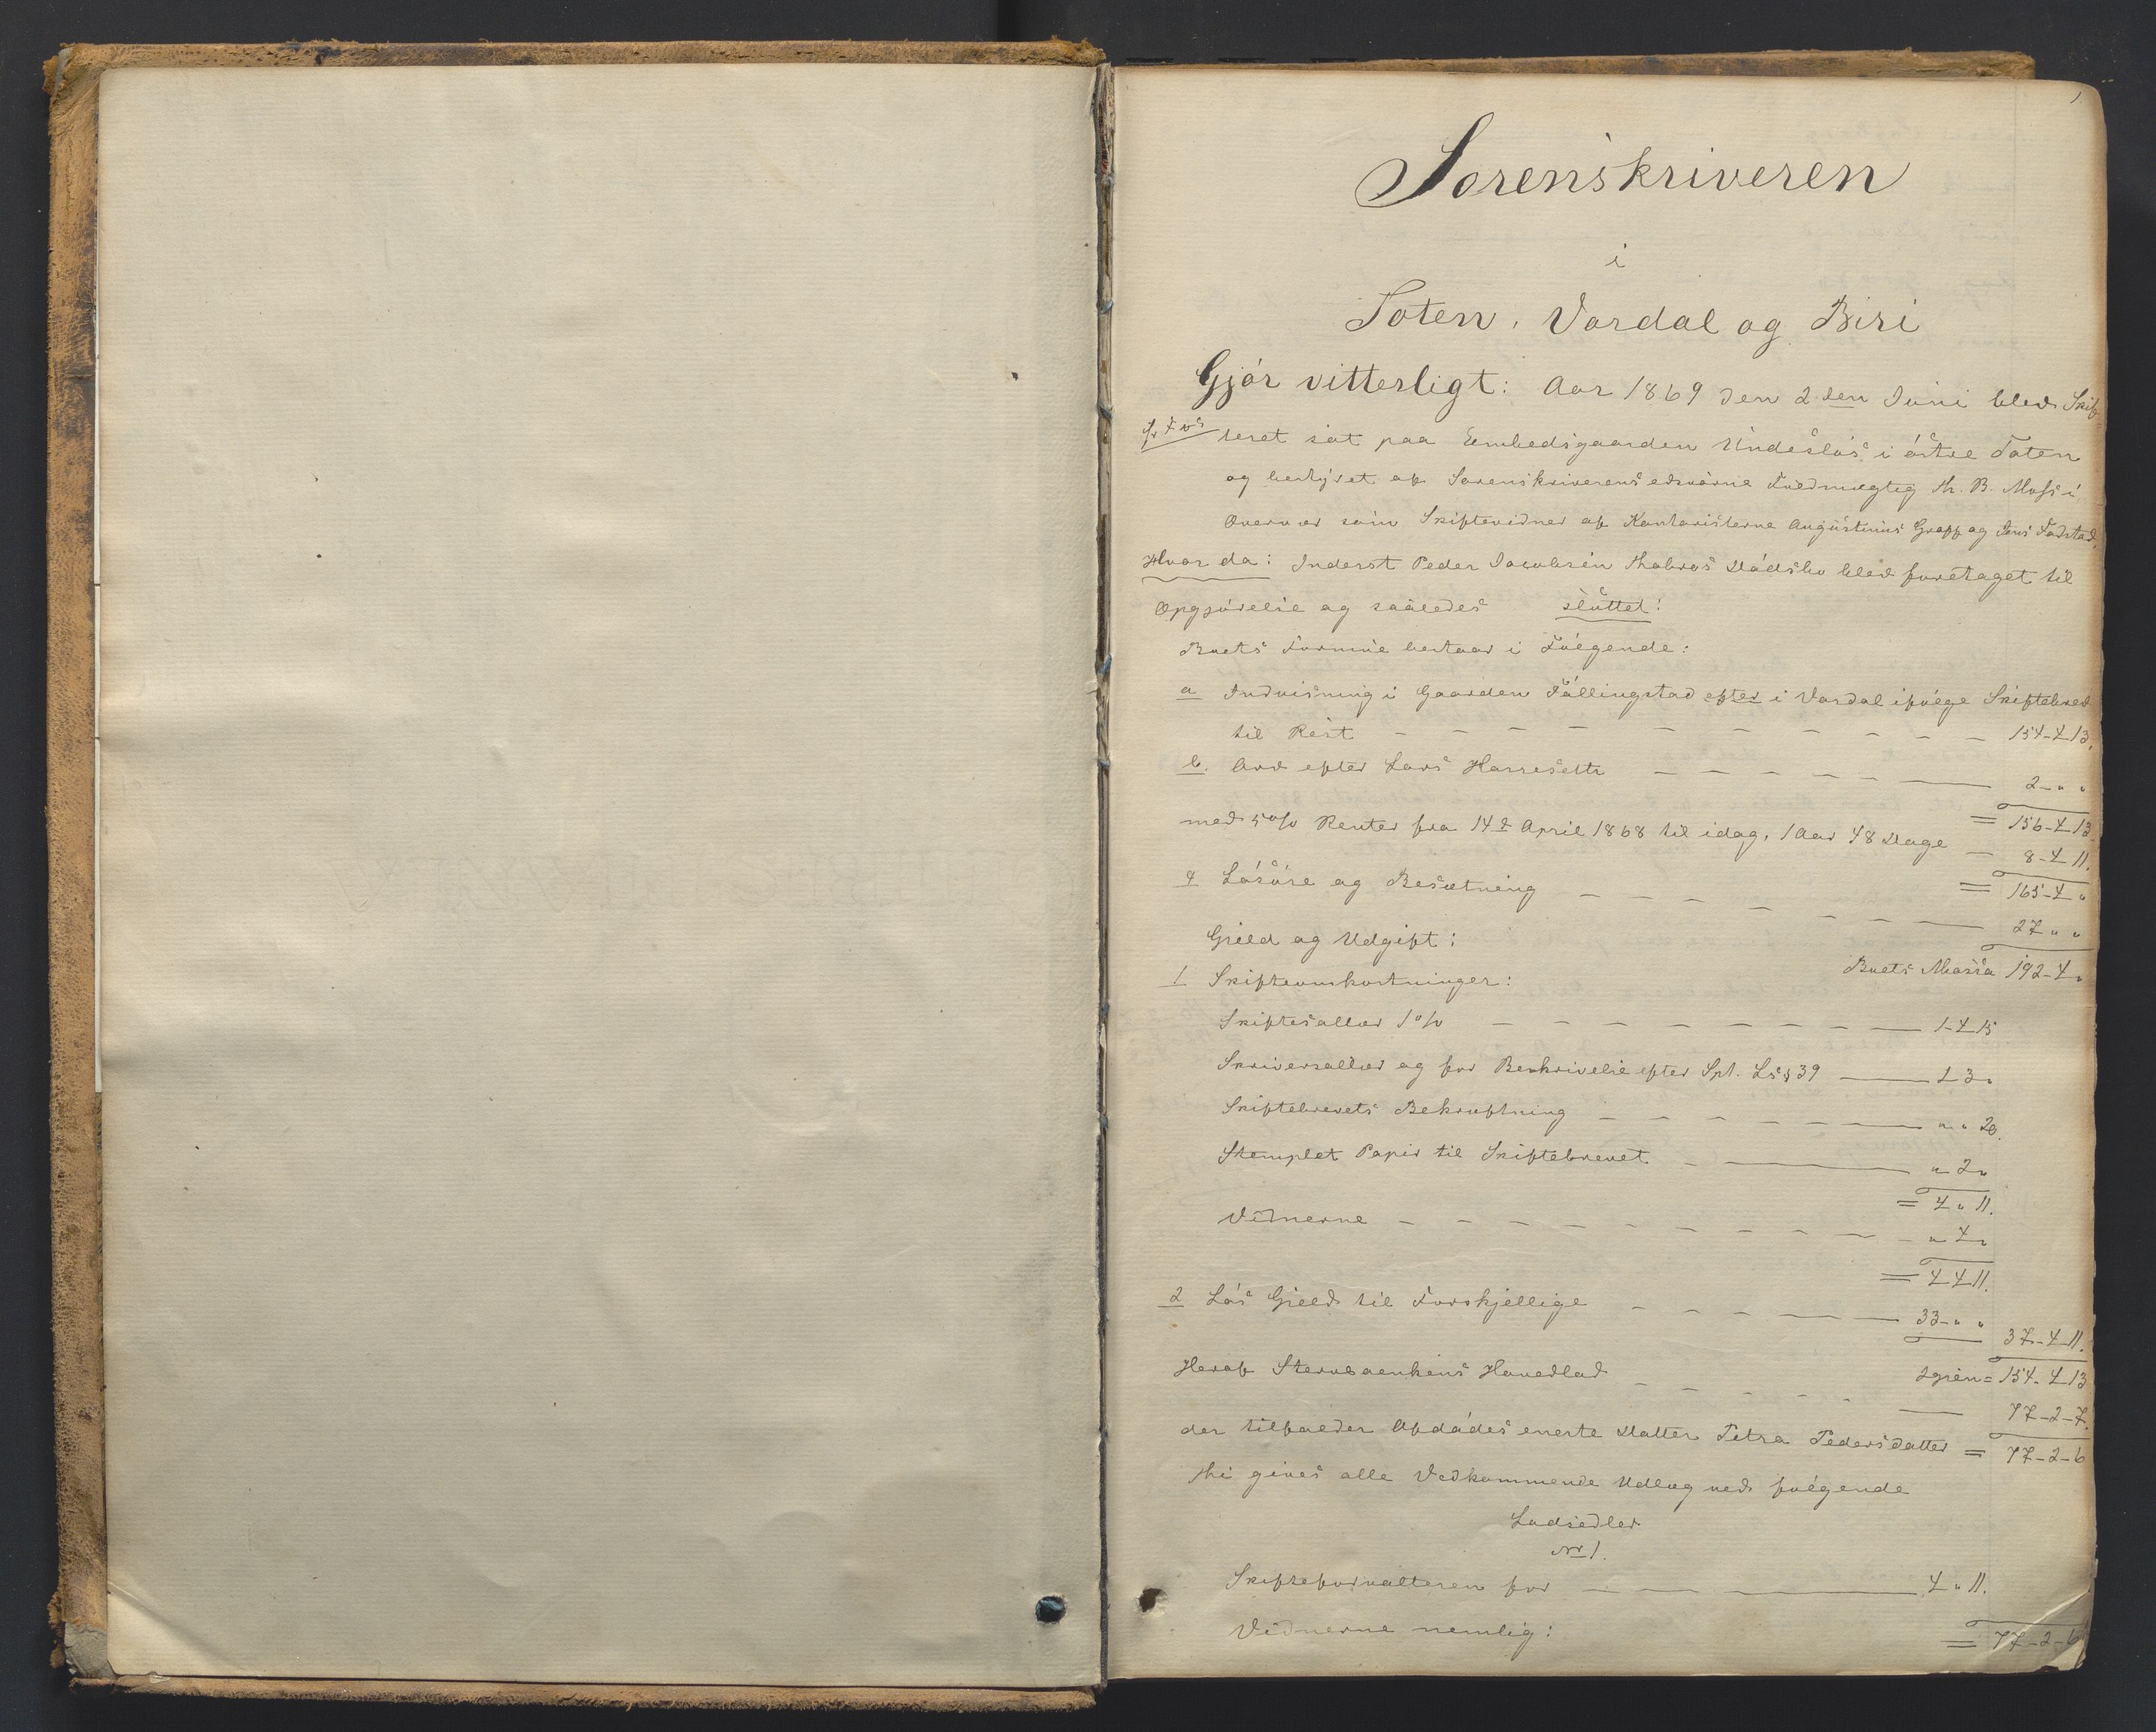 1
Sorenskriveren
i
Toten, Vardal og Biri
Gjór vitterligt: Aar 1869 den 2den Juni blev Skif-
teret sat paa Embedsgaarden Undeslós i óstre Toten
og bestyret af Sorenskriverens edsvorne Fuldmægtig Th. B. Moss i
Overvær som Skiftevidner af Kontoristerne Augustinus Grøff og Jens Fadstad,
Hvor da: Inderst Peder Jacobsen Thabros Dódsbo blev foretaget til
Opgjórelse og saaledes sluttet:
Boets Formue bestaar i Fólgende:
a Indvisning i Gaarden Fállingstad efter i Vardal ifólge Skiftebrev
til Rest — 154-4-13.
b. Arv efter Lars Harresætr — 2 - " "
= 156-4-13
med 5 % Renter fra 14de April 1868 til idag, 1 Aar 48 Dage — 8-4-11.
= 165-4 "
c Lósóre og Besætning — 27 " "
Boets Massa 192-4 "
Gjeld og Udgift:
1 Skifteomkostninger:
Skiftesallær 1 % — 1-4-15
Skriversallær og for Beskrivelse efter Spl. Ls § 39 — 2 3 "
Skiftebrevets Bekræftning — " " 20.
Stemplet Papir til Skiftebrevet — " 2 "
= 4 " 11.
Vidnerne — " 4 "
= 4 4 11.
2 Lós Gjeld til Forskjellige — 33 - " "
37-4-11.
Igjen = 154-4-13
Heraf Stervboenkens Hovedlod — 77-2-7.
der tilfalder Afdódes eneste Datter Petra Pedersdatter = 77-2-6
Thi gives alle Vedkommende Udlæg ved fólgende
Lodsedler
No 1.
Skifteforvalteren for — 4 " 11.
Vidnerne nemlig:
= 77-2-6